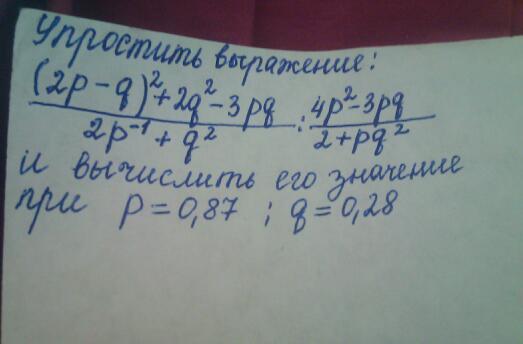 Упростить выражение:
((2p-q)²+2q²-3pq)/(2p⁻¹+q²) : (4p²-3pq)/(2+pq²)
и вычислить его значение
при p=0,87 ; q=0,28